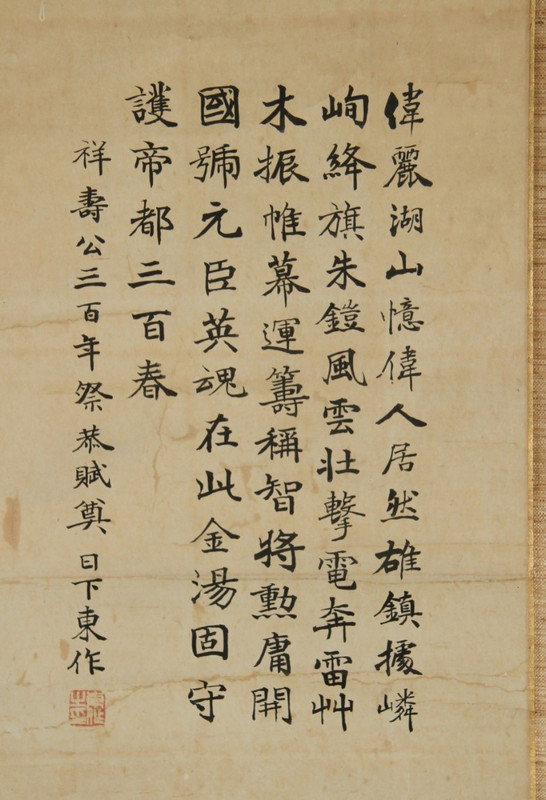 偉麗湖山憶偉人居然雄鎮據嶙
峋絳旗朱鎧風雲壯擊電奔雷艸
木振帷幕運籌稱智將勲庸開
國號元臣英魂在此金湯固守
護帝都三百春
祥壽公三百年祭恭賦奠日下東作